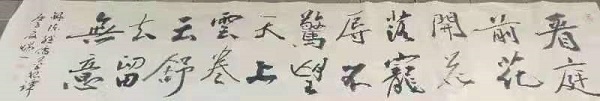 看庭
前花
開花
落寵
辱不
驚望
天上
雲卷
云舒
去留
無意